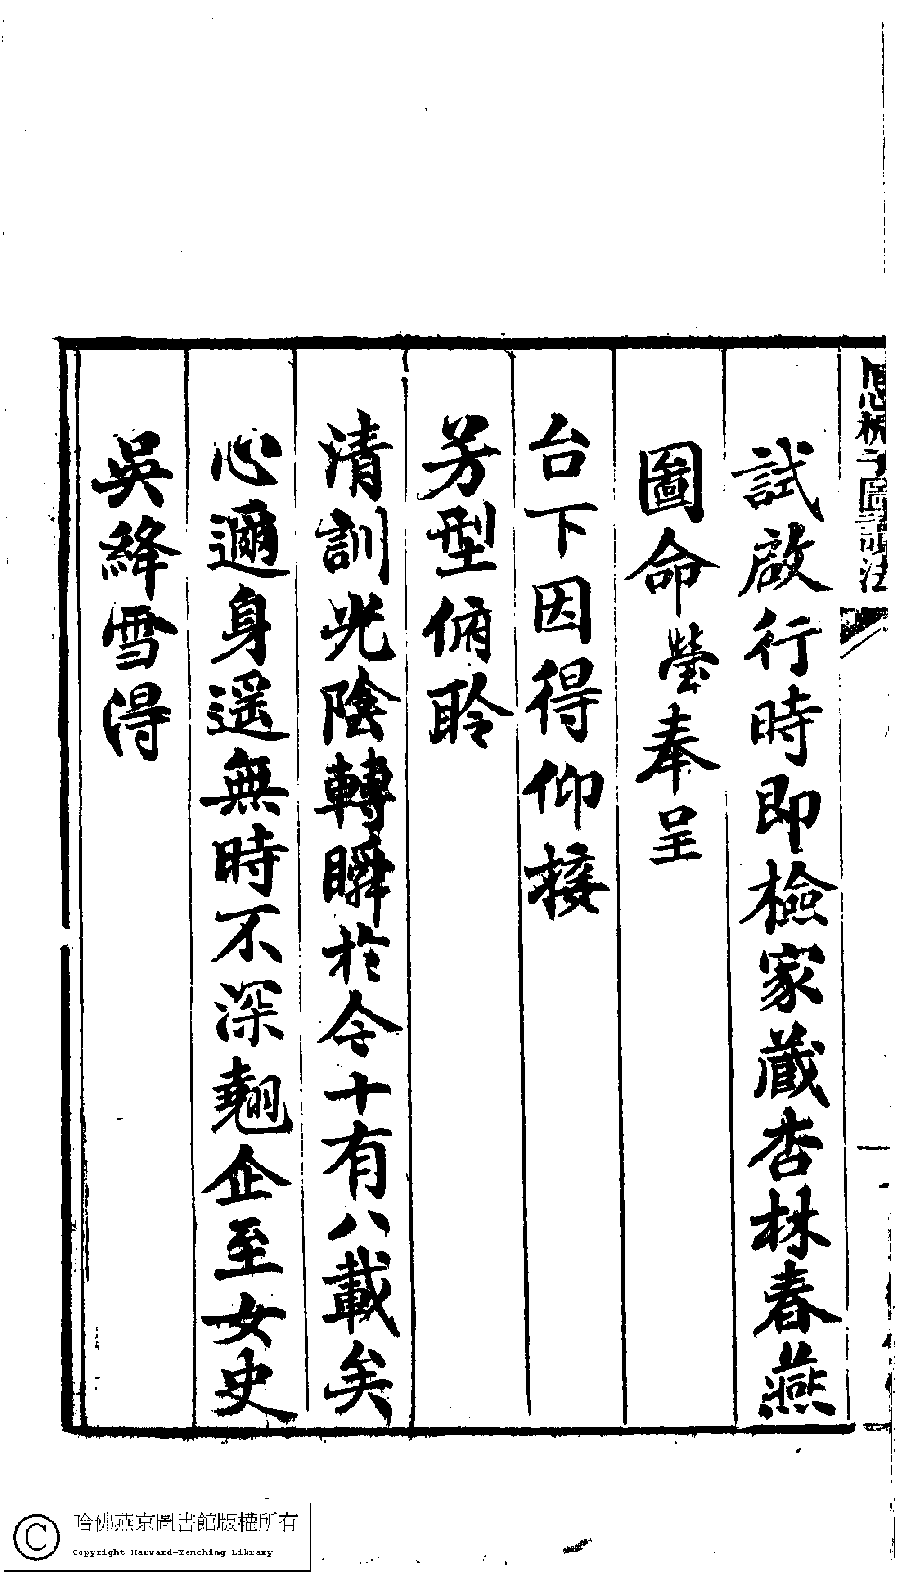 試啟行時即檢家藏杏林春燕
圖命瑩奉呈
台下因得仰接
芳型俯聆
清訓光陰轉瞬於今十有八載矣
心邇身遥無時不深翹企至女史
吳絳雪得
哈佛燕京圖書館版權所有
Copyright Harvard-Yenching Library